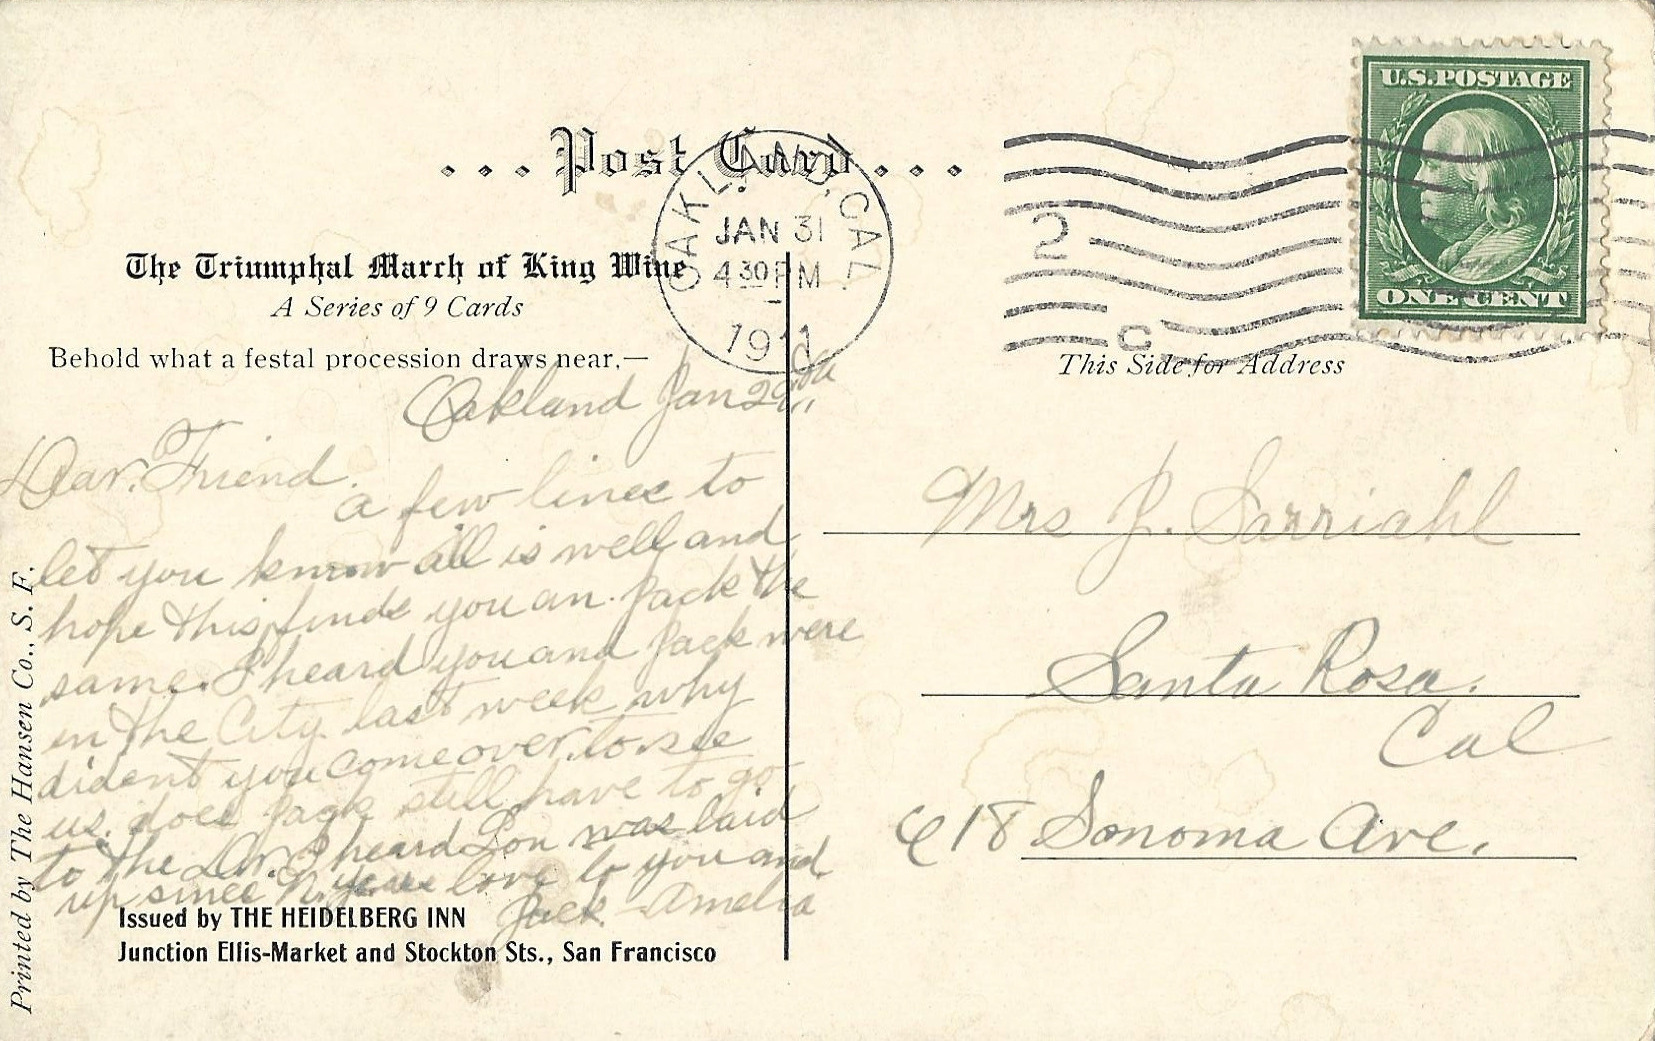 U.S.POSTAGE
ONE CENT
... Post Card ...
OAKLAND, CAL.
JAN 31
4 30 PM
1911
2
C
The Triumphal March of King Wine
A Series of 9 Cards
Behold what a festal procession draws near,—
This Side for Address
Oakland Jan 29
Dear. Friend.
a few lines to
let you know all is well and
hope this finds you an. Jack the
same. I heard you and Jack were
in the City last week why
dident you come over to see
us. does Jack still have to go
to the Dr. I heard Lou was laid
up since N. years love to you and
Jack. Amelia
Issued by THE HEIDELBERG INN
Junction Ellis-Market and Stockton Sts., San Francisco
Printed by The Hansen Co., S. F.
Mrs J.
Santa Rosa.
Cal
618 Sonoma Ave.